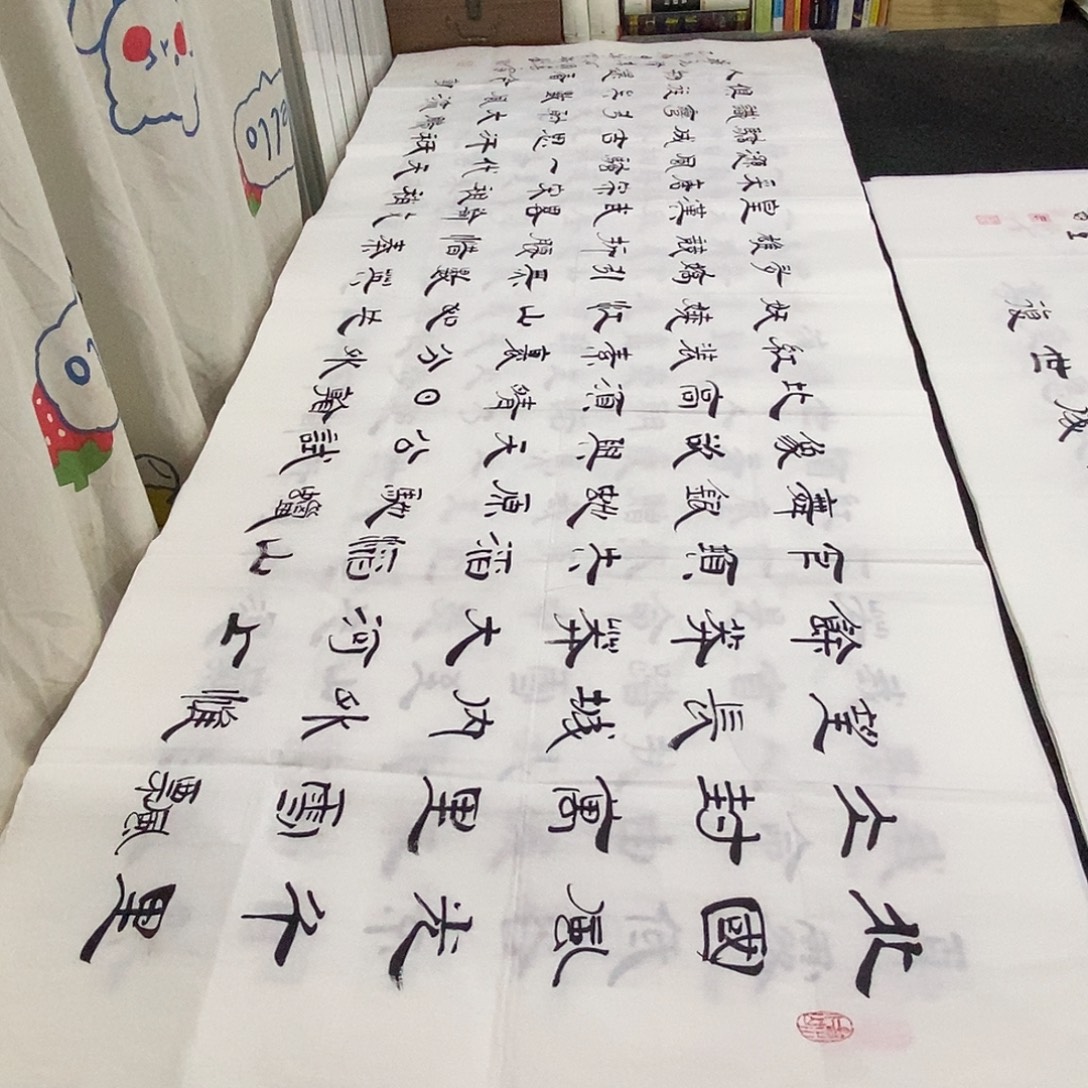 北國風光千里
冰封萬里雪飄
望長城内外惟
餘莽莽大河上
下頓失滔滔山
舞銀蛇原馳蠟
象欲與天公試
比高須晴日看
紅裝素裹分外
妖嬈江山如此
多嬌引無數英
雄競折腰惜秦
皇漢武略輸文
采唐宗宋祖稍
遜風騷一代天
驕成吉思汗衹
識彎弓射大雕
俱往矣數風流
人物還看今朝